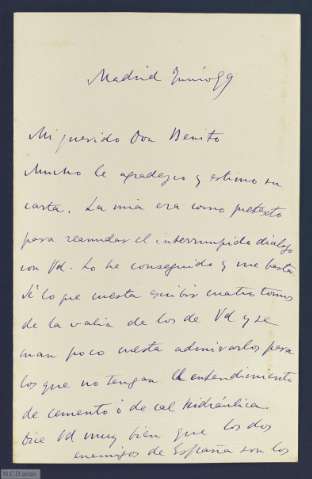 Madrid Junio 99
Mi querido Don Benito
Mucho le agradezco y estimo su
carta. La mia era como pretexto
para reanudar el interrumpido dialogo
con Vd. Lo he conseguido y me basta
Sé lo que cuesta escribir cuatro tomos
de la valia de los de Vd y se
cuan poco cuesta admirarlos para
los que no tengan el entendimiento
de cemento ó de cal hidráulica.
Dice Vd muy bien que los dos
enemigos de España son los